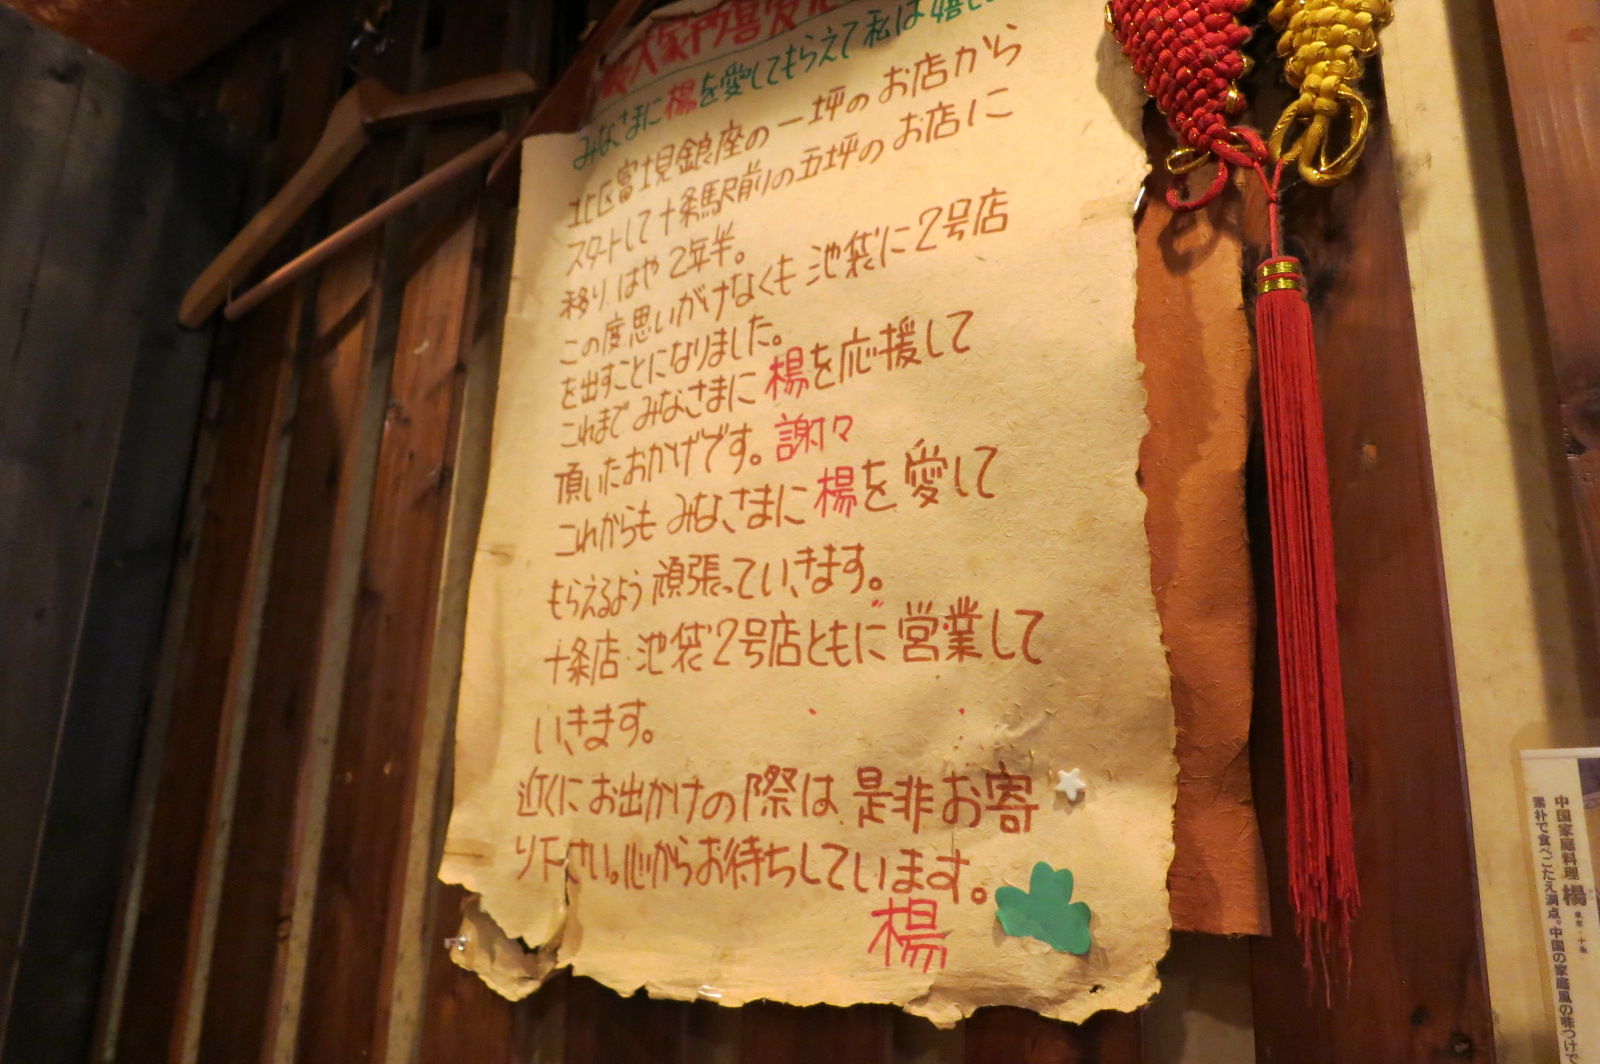 大家
みなさまに楊を愛してもらえて私は嬉し
北区富士見銀座の一坪のお店から
スタートして十条駅前の五坪のお店に
移り、はや2年半。
この度思いがけなくも池袋に2号店
を出すことになりました。
これまでみなさまに楊を応援して
頂いたおかげです。謝々
これからもみなさまに楊を愛して
もらえるよう頑張っていきます。
十条店・池袋2号店ともに営業して
いきます。
近くにお出かけの際は、是非お寄
り下さい。心からお待ちしています。
楊
中国家庭料理 楊 東京・十条
素朴で食べごたえ満点。中国の家庭風の味つけで